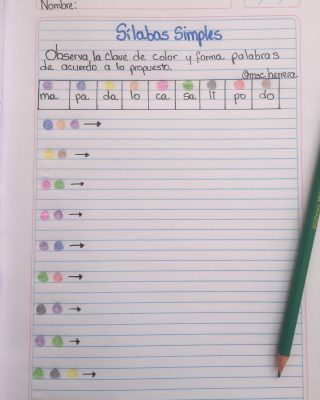 Nombre:
Sílabas Simples
Observa la clave de color y forma palabras
de acuerdo a lo propuesto.
@msc.herrera
ma pa da lo ca sa li po do